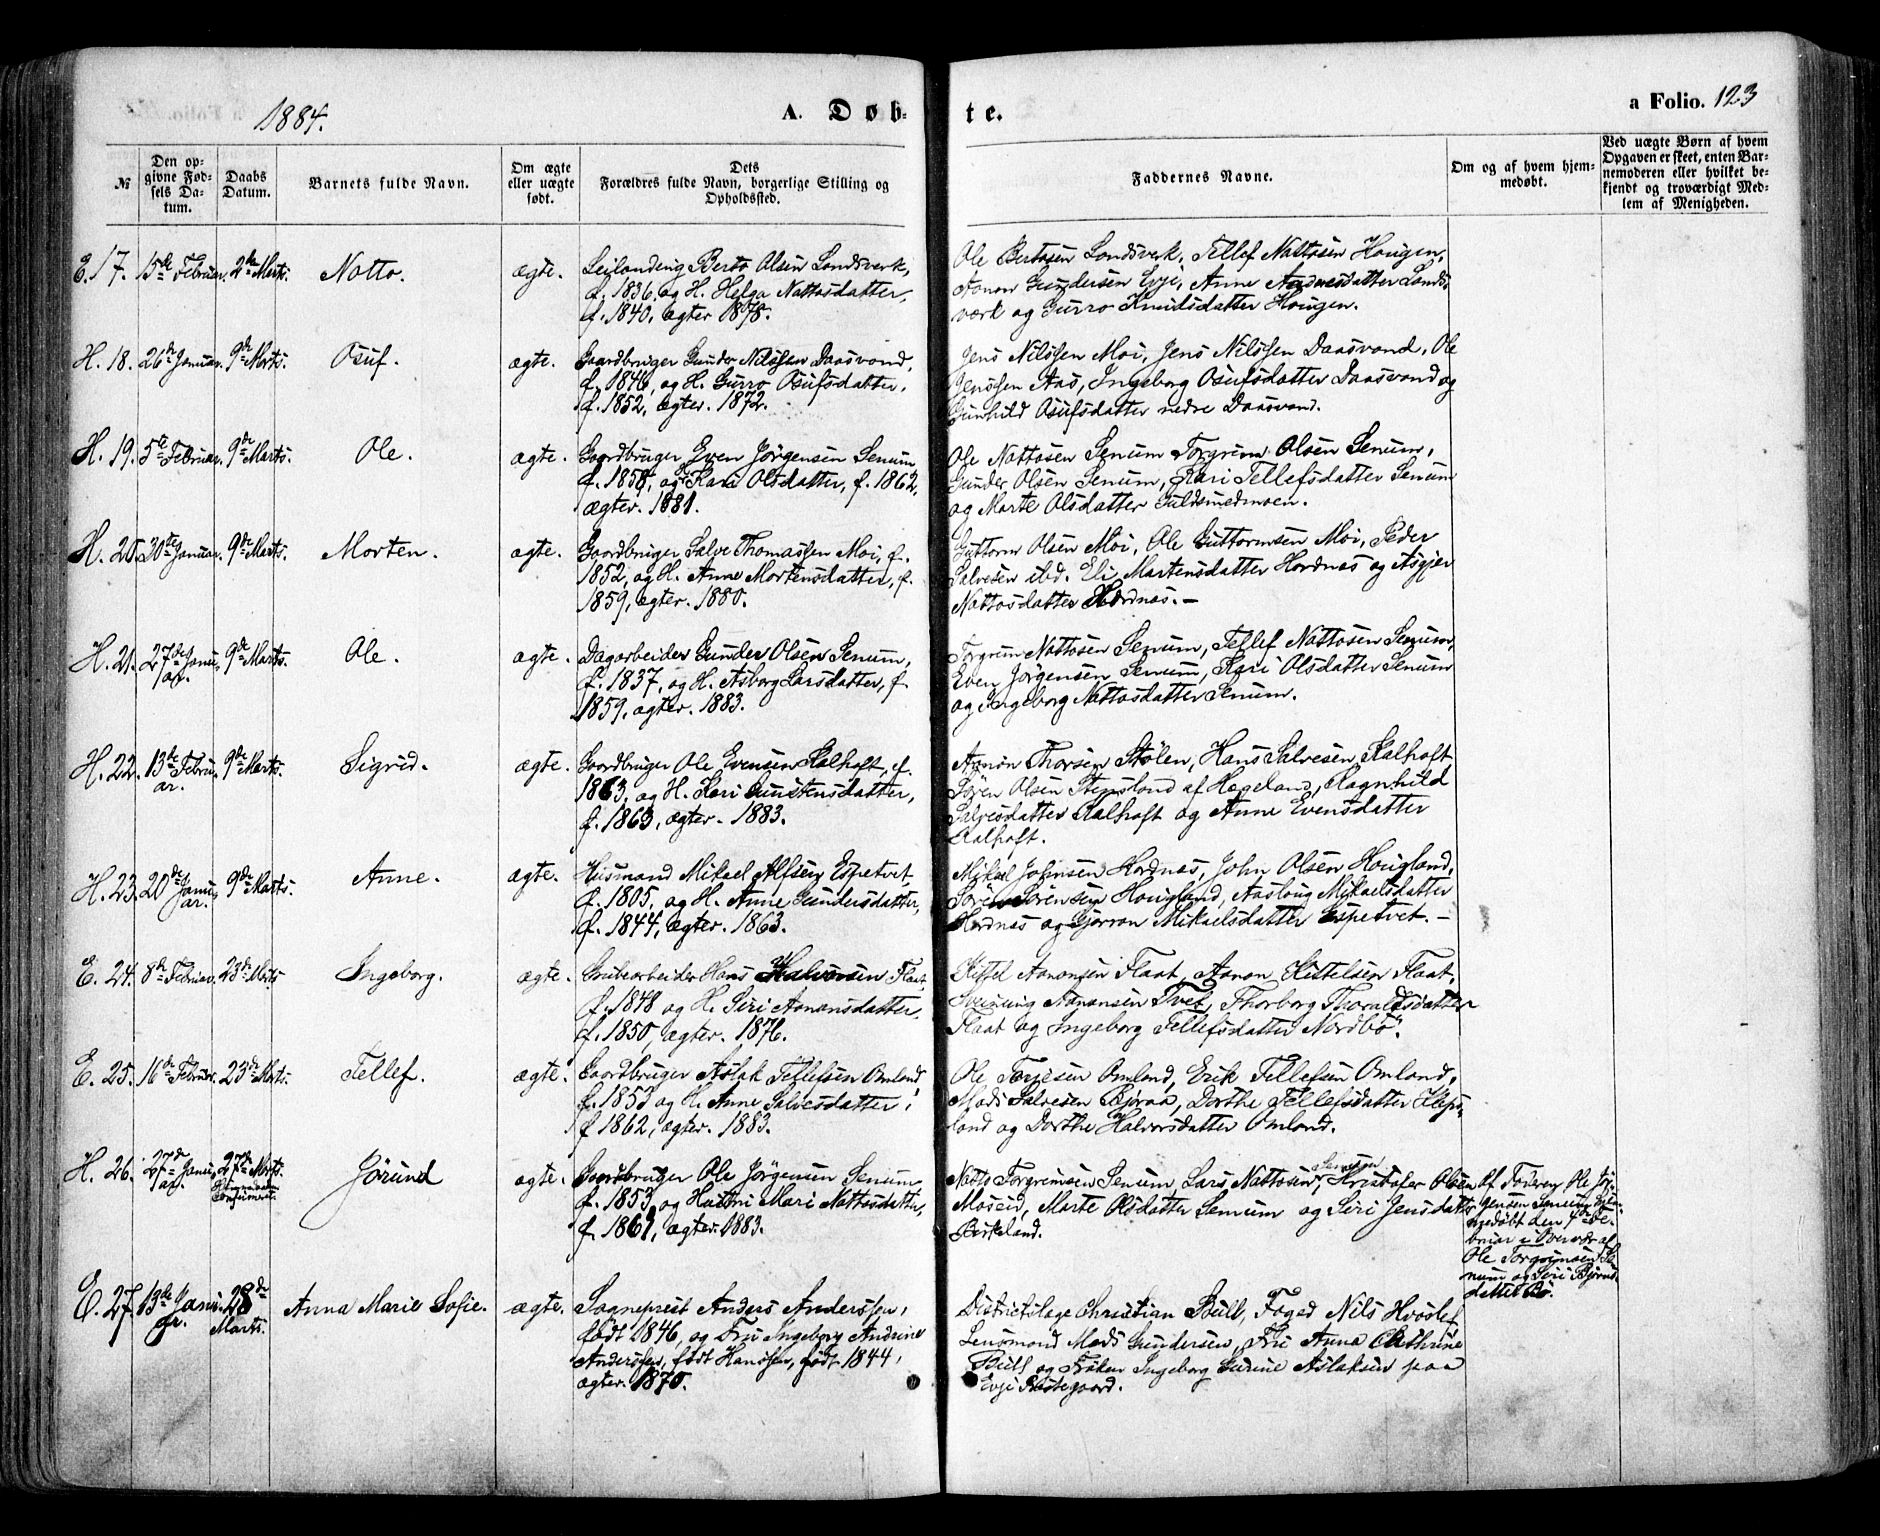 1884.
A. Døb-
te.
a Folio. 123
№
Den op-
givne Fød-
sels Da-
tum.
Daabs
Datum.
Barnets fulde Navn.
Om ægte
eller uægte
født.
Dets
Forældres fulde Navn, borgerlige Stilling og
Opholdssted.
Faddernes Navne.
Om og af hvem hjem-
medøbt.
Ved uægte Børn af hvem
Opgaven er skeet, enten Bar-
nemoderen eller hvilket be-
kjendt og troværdigt Med-
lem af Menigheden.
E. 17. 15de Februar. 2den Marts. Notto. ægte. Leilænding Berto Olsen Landsverk,
f. 1836, og H. Helga Nattosdatter,
f. 1840, ægter 1878.
Ole Bertosen Landsverk, Tellef Nattosen Hougen,
Aanon Gundersen Evje, Anne Andersdatter Lands-
værk og Gurro Knudsdatter Hougen.
H. 18. 26de Januar. 9de Marts. Osuf. ægte. Gaardbruger Gunder Nilssen Daasvand,
f. 1846, og H. Gurro Osufsdatter,
f. 1852, ægter. 1872.
Jens Nilssen Moi, Jens Nilssen Daasvand, Ole
Jenssen Aas, Ingeborg Osufsdatter Daasvand og
Gunhild Osufsdatter nedre Daasvand.
H. 19. 5te Februar. 9de Marts. Ole. ægte. Gaardbruger Even Jørgensen Senum
f. 1858, og H. Kari Olsdatter, f. 1862,
ægter. 1881.
Ole Nattosen Senum Torgrim Olsen Senum,
Gunder Olsen Senum, Kari Tellefsdatter Senum
og Marte Olsdatter Guldsmedmoen.
H. 20. 30te Januar. 9de Marts. Morten. ægte. Gaardbruger Salve Thomassen Moi, f.
1852, og H. Anne Mortensdatter, f.
1859, ægter. 1880.
Guttorm Olsen Moi, Ole Guttormsen Moi, Peder
Salvesen ibd. Eli Martensdatter Hordnæs og Asgjer
Nattosdatter Hordnæs. —
H. 21. 27de Janu-
ar. 9de Marts. Ole. ægte. Dagarbeider Gunder Olsen Senum,
f. 1837, og H. Asborg Larsdatter, f.
1859, ægter. 1883.
Torgrim Nattosen Senum, Tellef Nattosen Senum,
Even Jørgensen Senum, Kari Olsdatter Senum
og Ingeborg Nattosdatter Senum.
H. 22. 13de Febru-
ar. 9de Marts. Sigrid. ægte. Gaardbruger Ole Evensen Kalhoft, f.
1863, og H. Kari Gunstensdatter,
f. 1863, ægter. 1883.
Aanon Thorsen Stølen, Hans Salvesen Kalhoft,
Søren Olsen Stensland af Hægeland, Ragnhild
Salvesdatter Kalhoft og Anne Evensdatter
Kalhoft.
H. 23. 20de Janu-
ar. 9de Marts. Anne. ægte. Husmand Mikael Alfsen Espetvet,
f. 1805, og H. Anne Gundersdatter,
f. 1844, ægter. 1863.
Mikael Johnsen Hordnæs, John Olsen Hougland,
Søren Sørensen Hougland, Aaslaug Mikaelsdatter
Hordnæs og Gjørron Mikaelsdatter Espetvet. —
E. 24. 8de Februar. 23de Marts. Ingeborg. ægte. Grubearbeider Hans Halvorsen Flaat,
f. 1848 og H. Siri Aanonsdatter,
f. 1850, ægter. 1876.
Kittel Aanonsen Flaat, Aanon Kittelsen Flaat,
Aanonsen Tvet, Thorborg Thoraldsdatter
Flaat og Ingeborg Tellefsdatter Nordbø.
E. 25. 16de Februar. 23de Marts. Tellef. ægte. Gaardbruger Aslak Tellefsen Omland,
f. 1853 og H. Anne Salvesdatter,
f. 1862, ægter. 1883.
Ole Torjesen Omland, Erik Tellefsen Omland,
Mads Salvesen Bjoraa, Dorthe Tellefsdatter Kleps-
land og Dorthe Halvorsdatter Omland.
H. 26. 27de Janu-
ar. 27de Marts.
Jørund ægte. Gaardbruger Ole Jørgensen Senum,
f. 1853 og Hustru Mari Nattosdatter,
f. 1861, ægter. 1883.
Natto Torgrimsen Senum, Lars Nattosen Senum, Kristofer Olsen
Moseid, Marte Olsdatter Senum og Siri Jensdatter
Birkeland.
Af Faderen Ole Jør-
gensen Senum hjem-
medøbt den 4de Fe-
bruar i Overvær af
Ole Torgrimsen Se-
num og Siri Bjørns-
datter Bø.
E. 27. 13de Janu-
ar. 28de
Marts. Anna Marie Sofie. ægte. Sogneprest Anders Anderssen,
født 1846, og Fru Ingeborg Andrine
Anderssen, født Hanssen, født 1844,
ægter. 1870.
Distriktslæge Christian Bull, Foged Nils Hvoslef
Lensmand Mads Gundersen, Fru Anna Cathrine
Bull og Frøken Ingeborg Gurine Aslaksen paa
Evje Præstegaard.